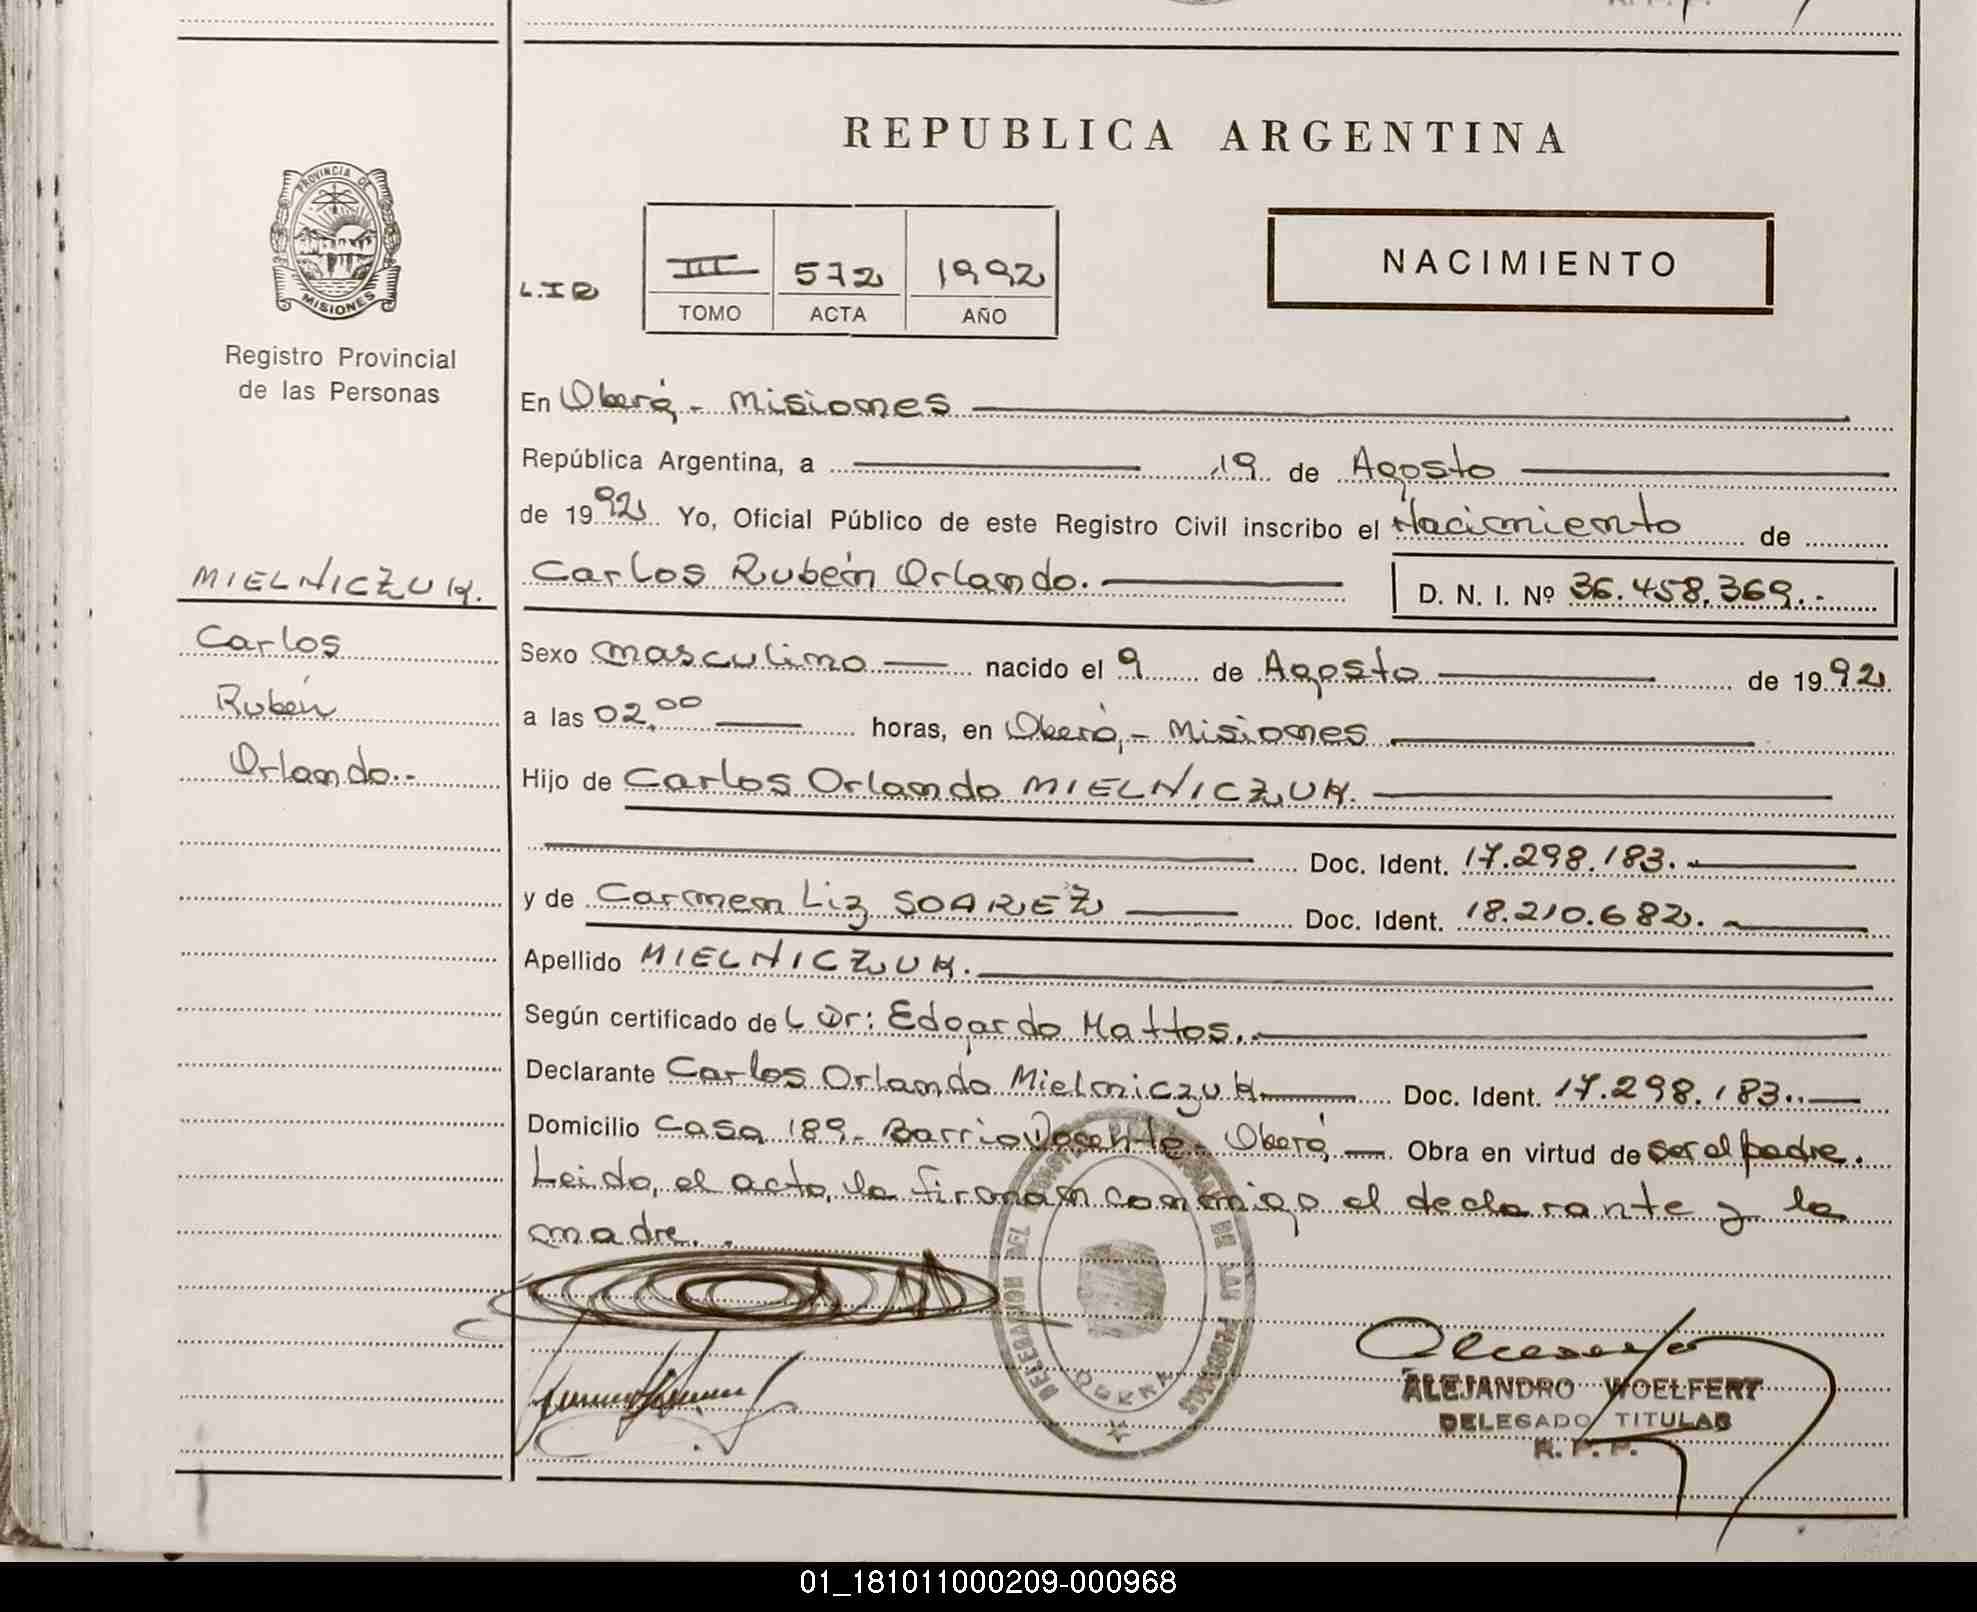 REPUBLICA ARGENTINA
PROVINCIA DE
MISIONES
Registro Provincial
de las Personas
III 572 1992
TOMO ACTA AÑO
NACIMIENTO
En Oberá - Misiones
República Argentina, a 19 de Agosto
de 1992 Yo, Oficial Público de este Registro Civil inscribo el Nacimiento de
MIELNICZUK.
Carlos
Rubén
Orlando.-
Carlos Rubén Orlando. D. N. I. Nº 36.458.369.-
Sexo masculino nacido el 9 de Agosto de 1992
a las 02,00 horas, en Oberá,- Misiones
Hijo de Carlos Orlando MIELNICZUK.
Doc. Ident. 17.298.183.
y de Carmen Liz SOAREZ Doc. Ident. 18.210.682.
Apellido MIELNICZUK.
Según certificado del Dr: Edgardo Mattos.
Declarante Carlos Orlando Mielniczuk Doc. Ident. 17.298.183..
Domicilio Casa 189- Barrio Docente- Oberá, Obra en virtud de ser el padre.
Leida, el acta, la firman conmigo el declarante y la
madre..
DELEGACION DEL REGISTRO DE LAS PERSONAS
ALEJANDRO WOELFERT
DELEGADO TITULAR
R. P. P.
01_181011000209-000968